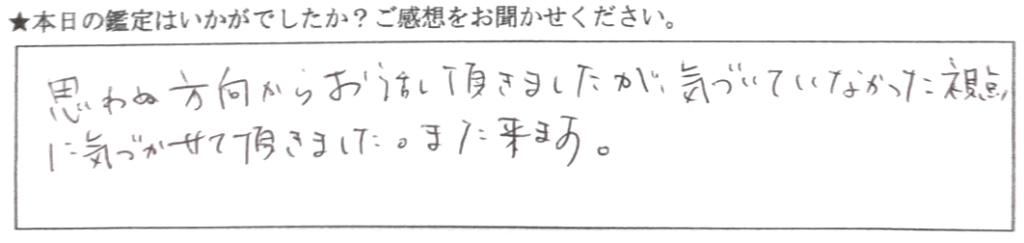 ★本日の鑑定はいかがでしたか？ご感想をお聞かせください。
思わぬ方向からお話し頂きましたが、気づいていなかった視点
に気づかせて頂きました。また来ます。